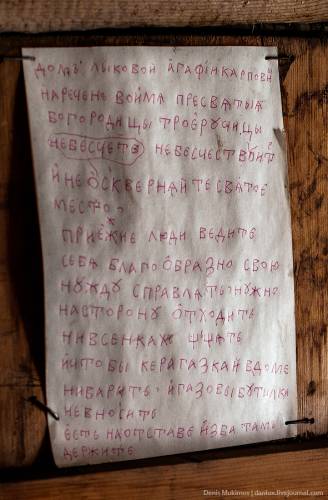 домъ лыковой агафіи карповн
наречене во има пресватыѧ
богородицы троеручицы
небесчете небесчествꙋит
и не ѻсквернайте сватое
место,
приежие люди ведите
себа благоѻбразно свою
нꙋждꙋ справлать нꙋжно
насторонꙋ ѿходить
нивсенках
и что бы керагазкай вдоме
ниварить. и газовы бꙋтилка
невносите
есть на ѿставе изба тамъ
держите
Denis Mukimov | dantos.livejournal.com